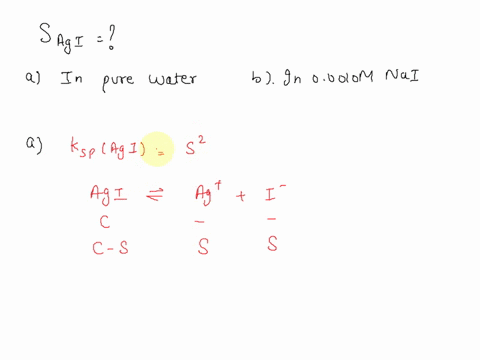 S AgI = ?
a) In pure water b). In 0.0010M NaI
a) Ksp (AgI) = S²
AgI ⇌ Ag⁺ + I⁻
C - -
C-S S S